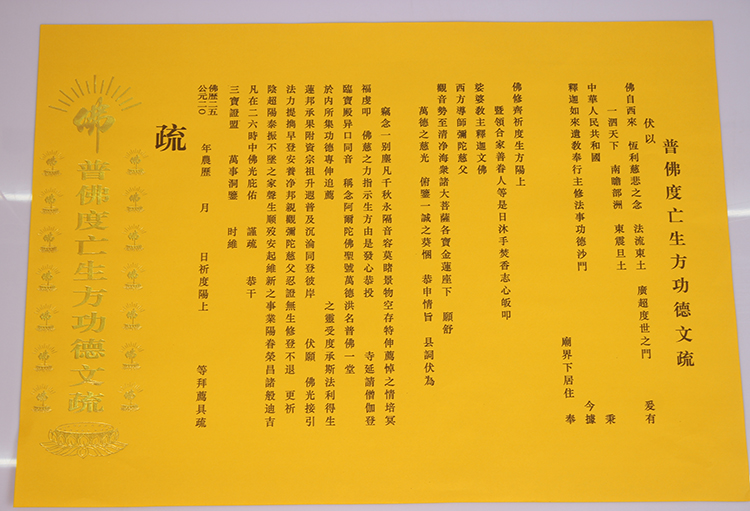 普佛度亡生方功德文疏
伏以
佛自西來 恆利慈悲之念 法流東土 廣超度世之門 爰有
一泗天下 南瞻部洲 東震旦土 秉
中華人民共和國 今據
釋迦如來遺敎奉行主修法事功德沙門
廟界下居住 奉
佛修齊祈度生方陽上
暨領合家善眷人等是日沐手焚香志心皈叩
娑婆敎主釋迦文佛
西方導師彌陀慈父
觀音勢至清净海衆諸大菩薩各寶金蓮座下 願舒
萬德之慈光 俯鑒一誠之葵悃 恭申情旨 具詞伏為
竊念一别塵凡千秋永隔音容莫睹景物空存特伸薦悼之情培冥
福虔叩 佛慈之力指示生方由是發心恭投 寺延請僧伽登
臨寶殿异口同音 稱念阿彌陀佛聖號萬德洪名普佛一堂
於内所集功德專伸追薦 之靈受度承斯法利得生
蓮邦承果附資宗祖升遐普及沉淪同登彼岸 伏願 佛光接引
法力提攜早登安養净邦親觀彌陀慈父忍證無生修登不退 更祈
陰超陽泰振不墜之家聲生顺殁安起維新之事業陽眷榮昌諸般迪吉
凡在二六時中佛光庇佑 謹疏 恭干
三寶證盟 萬事洞鑒 时維
佛歷二五
公元二0 年農歷 月 日祈度陽上 等拜薦具疏
疏
佛
普佛度亡生方功德文疏